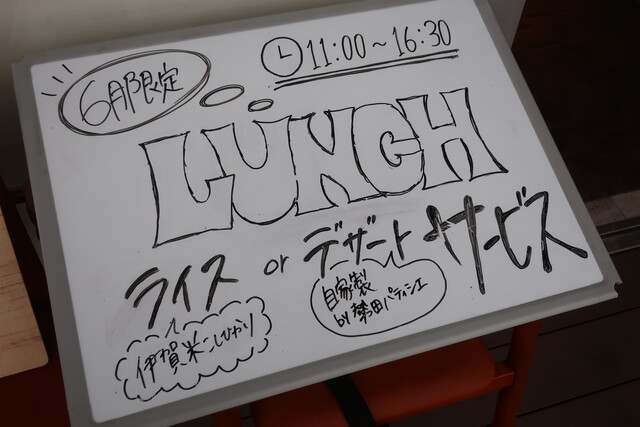 6月限定
11:00～16:30
LUNCH
ライス or デザート サービス
伊賀米こしひかり
自家製
by 築田パティシエ